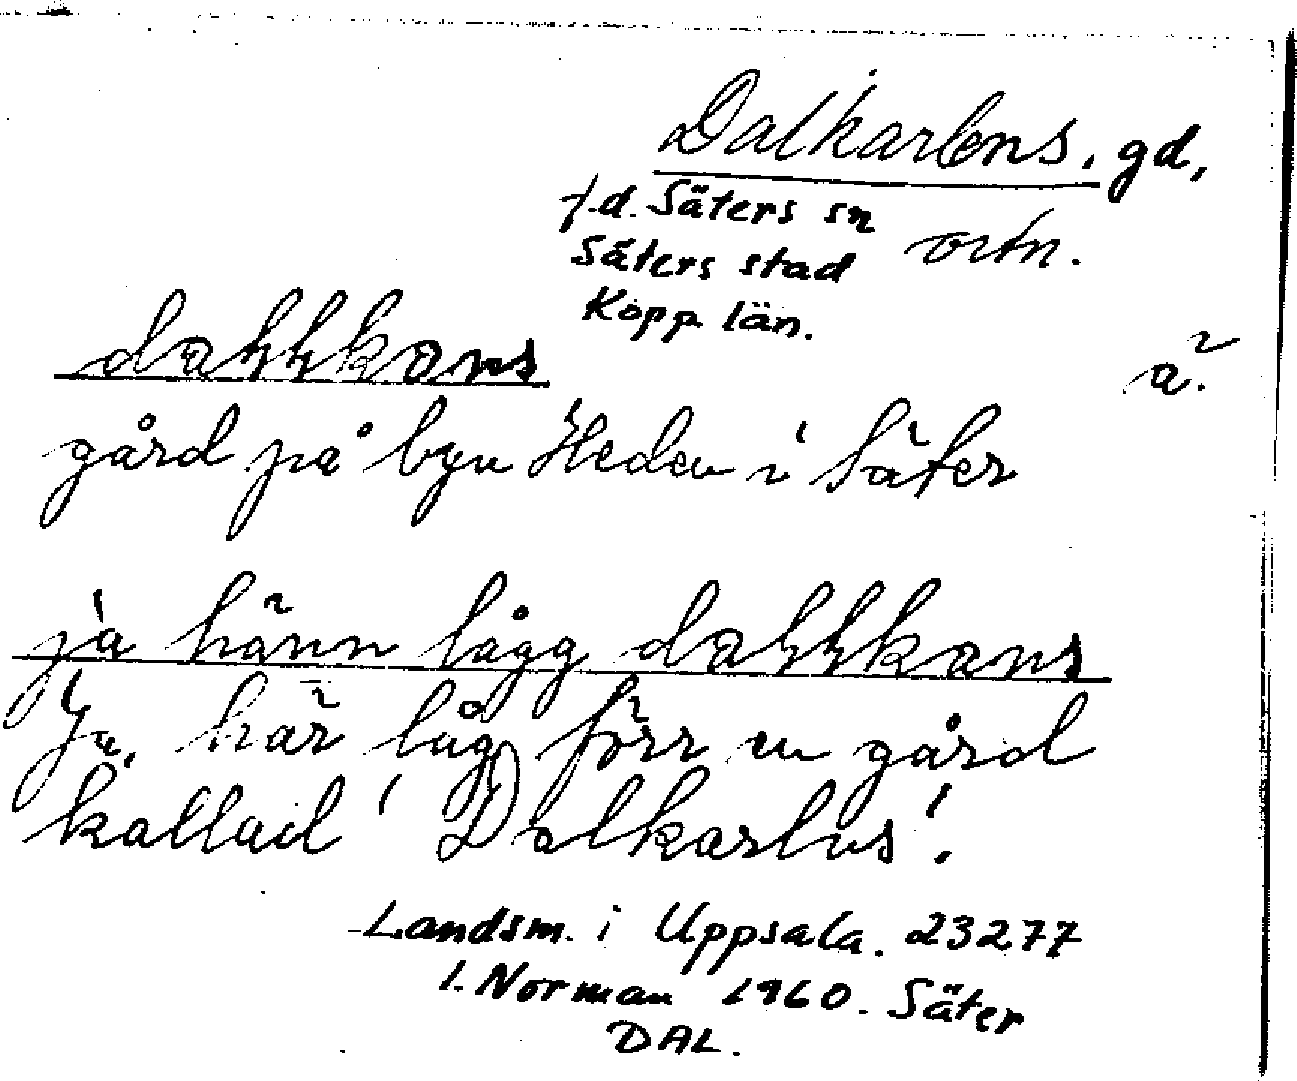 Dalkarlens. gd,
f.d. Säters sn
ortn.
Säters stad
Kopp län.
dahhkans
ä.
gård på byn Heden i Säter
ja hänn lågg dahhkans
Ja, här låg förr en gård
kallad 'Dalkarlns'.
Landsm. i Uppsala. 23277
I. Norman 1960. Säter
DAL.